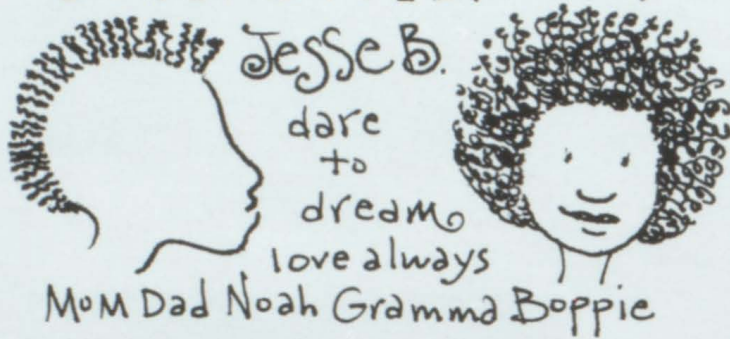 Jesse B.
dare
to
dream
love always
MoM Dad Noah Gramma Boppie